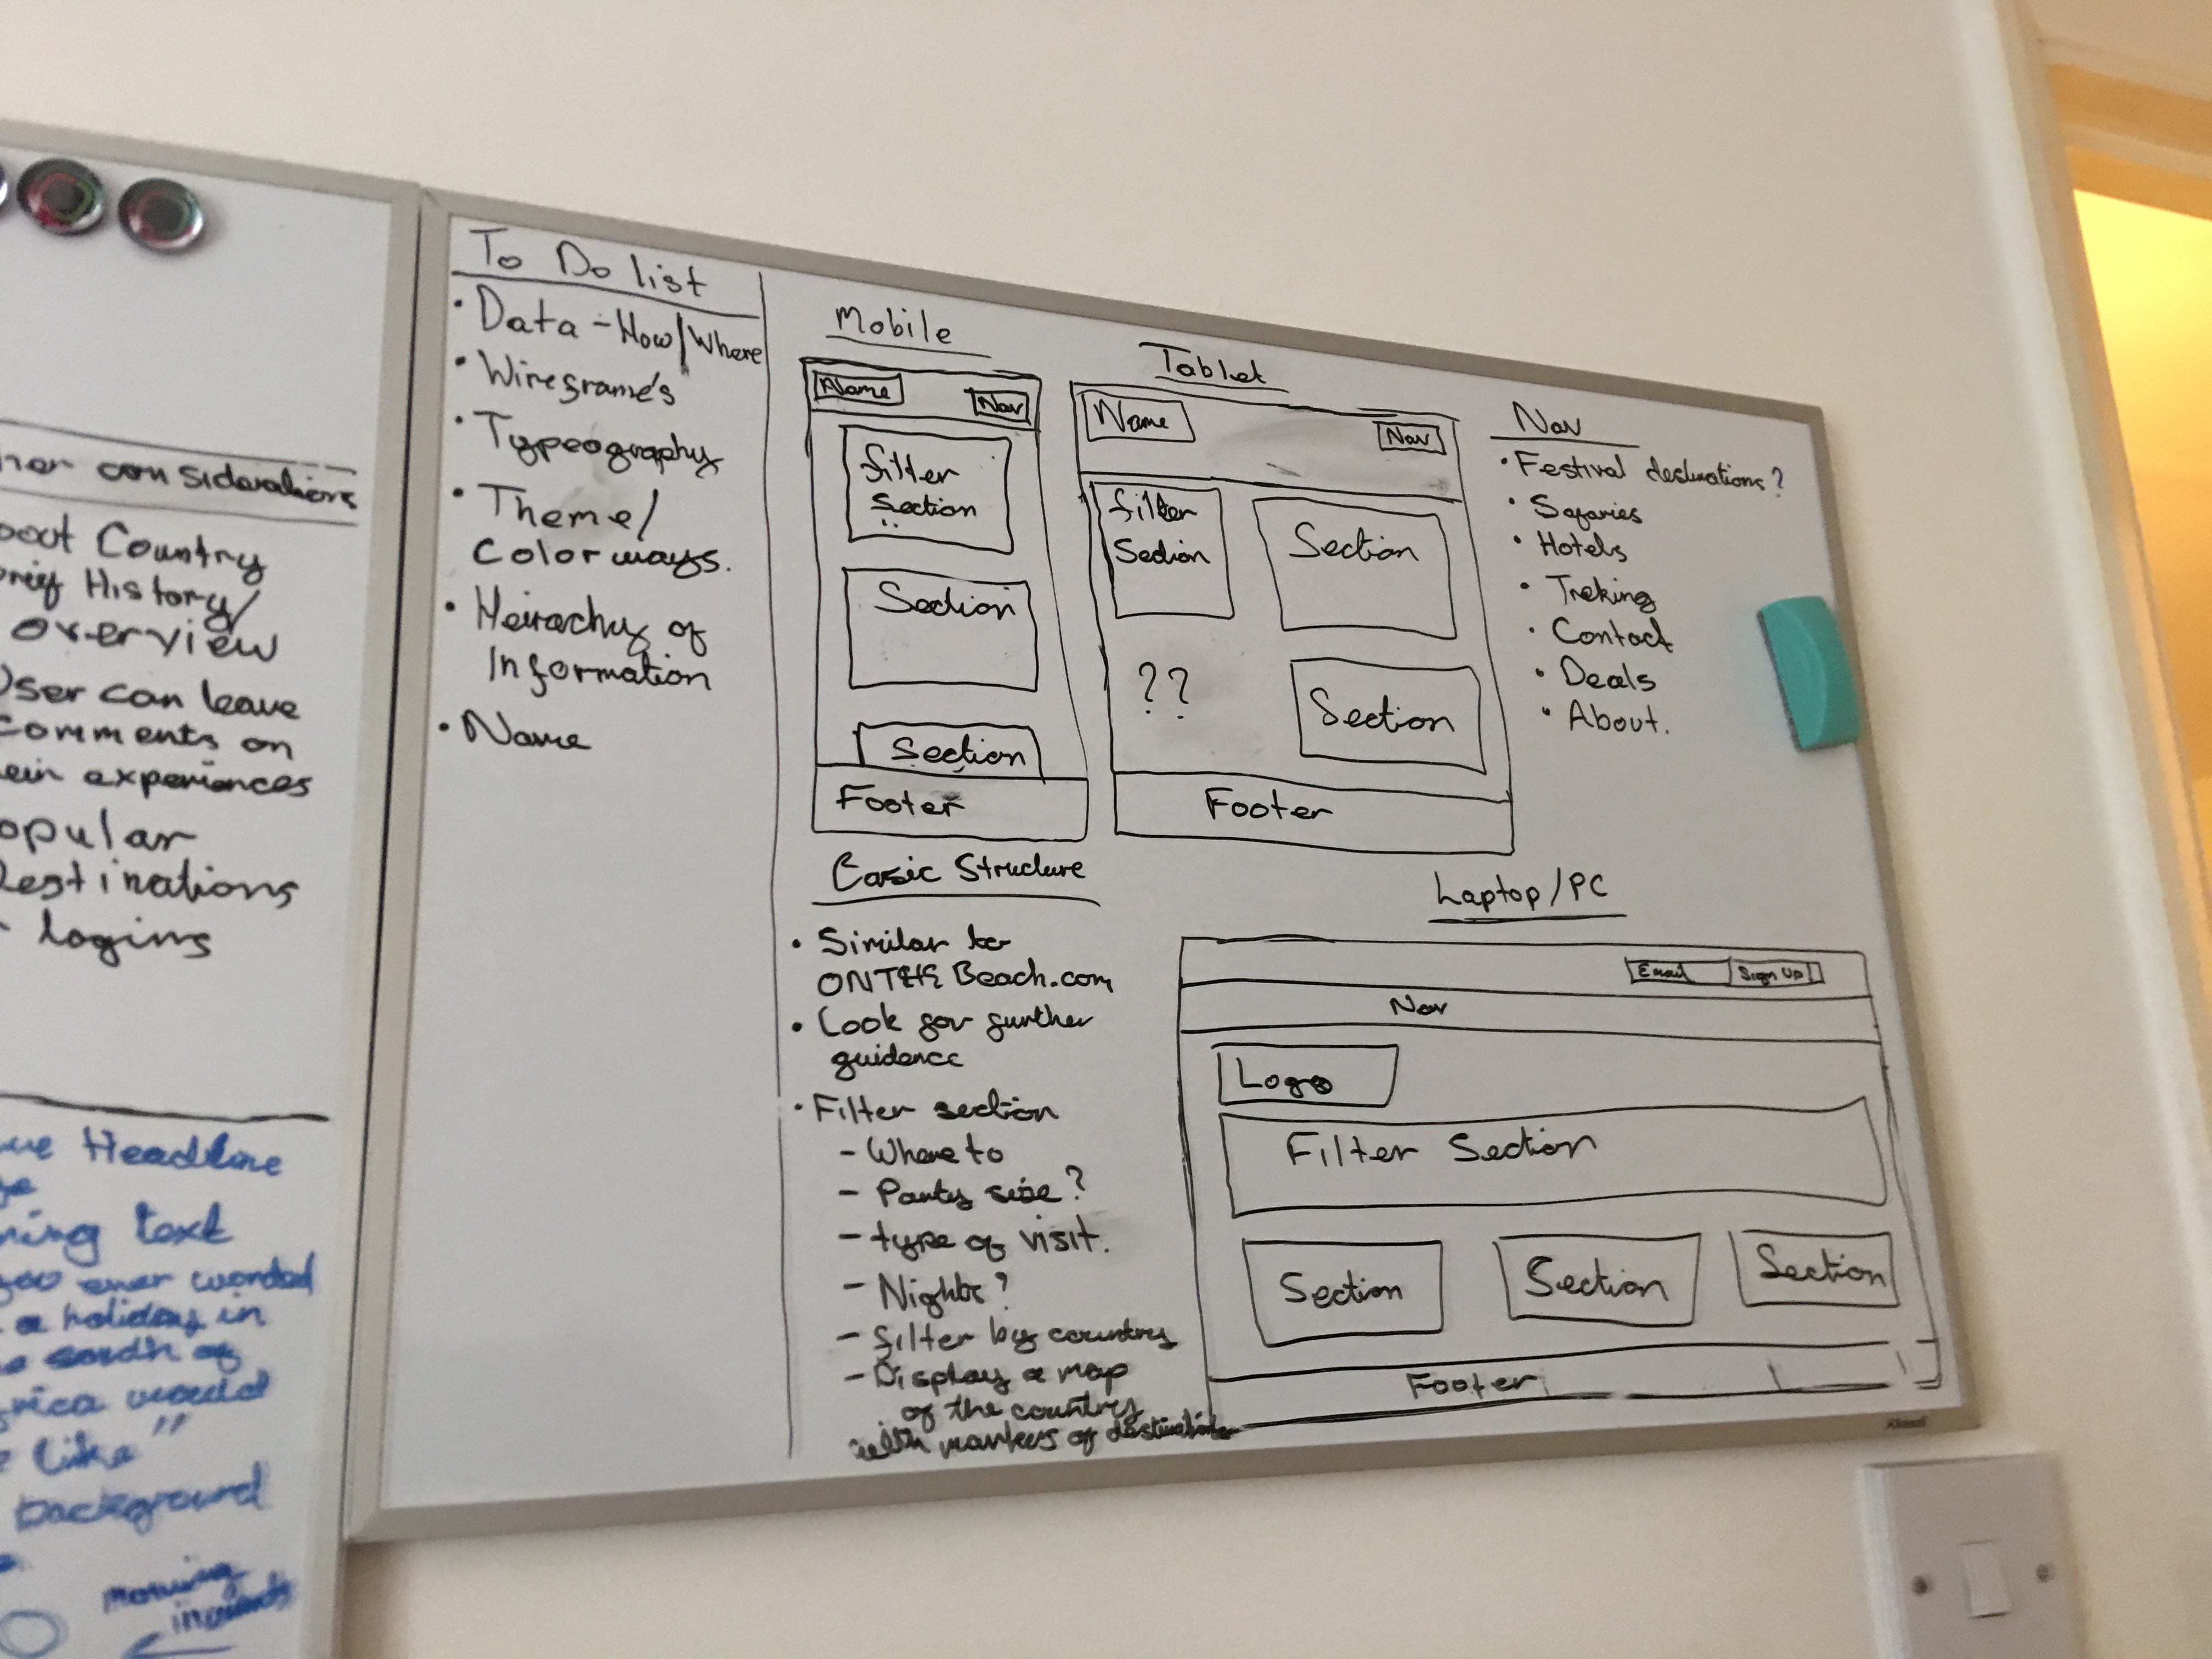 considerations
Country
History/
overview
User can leave
comments on
experiences
Destinations
logins
Headline
text
ever
a holiday in
like"
background
To Do list
• Data - How/Where
• Wireframe's
• Typeography
• Theme/
Colorways.
• Heirachy of
Information
• Name
Mobile
Name
Nav
filter
section
Section
Section
Footer
Tablet
Name
Nav
filter
Section
Section
??
Section
Footer
Nav
• Festival destinations?
• Safaries
• Hotels
• Treking
• Contact
• Deals
• About.
Basic Structure
• Similar to
ONTHE Beach.com
• Look for further
guidence
• Filter section
- Where to
- Party size?
- type of visit.
- Nights?
- filter by country
- Display a map
of the country
with markers of destination
Laptop/PC
Email
Sign Up
Nav
Logo
Filter Section
Section
Section
Section
Footer